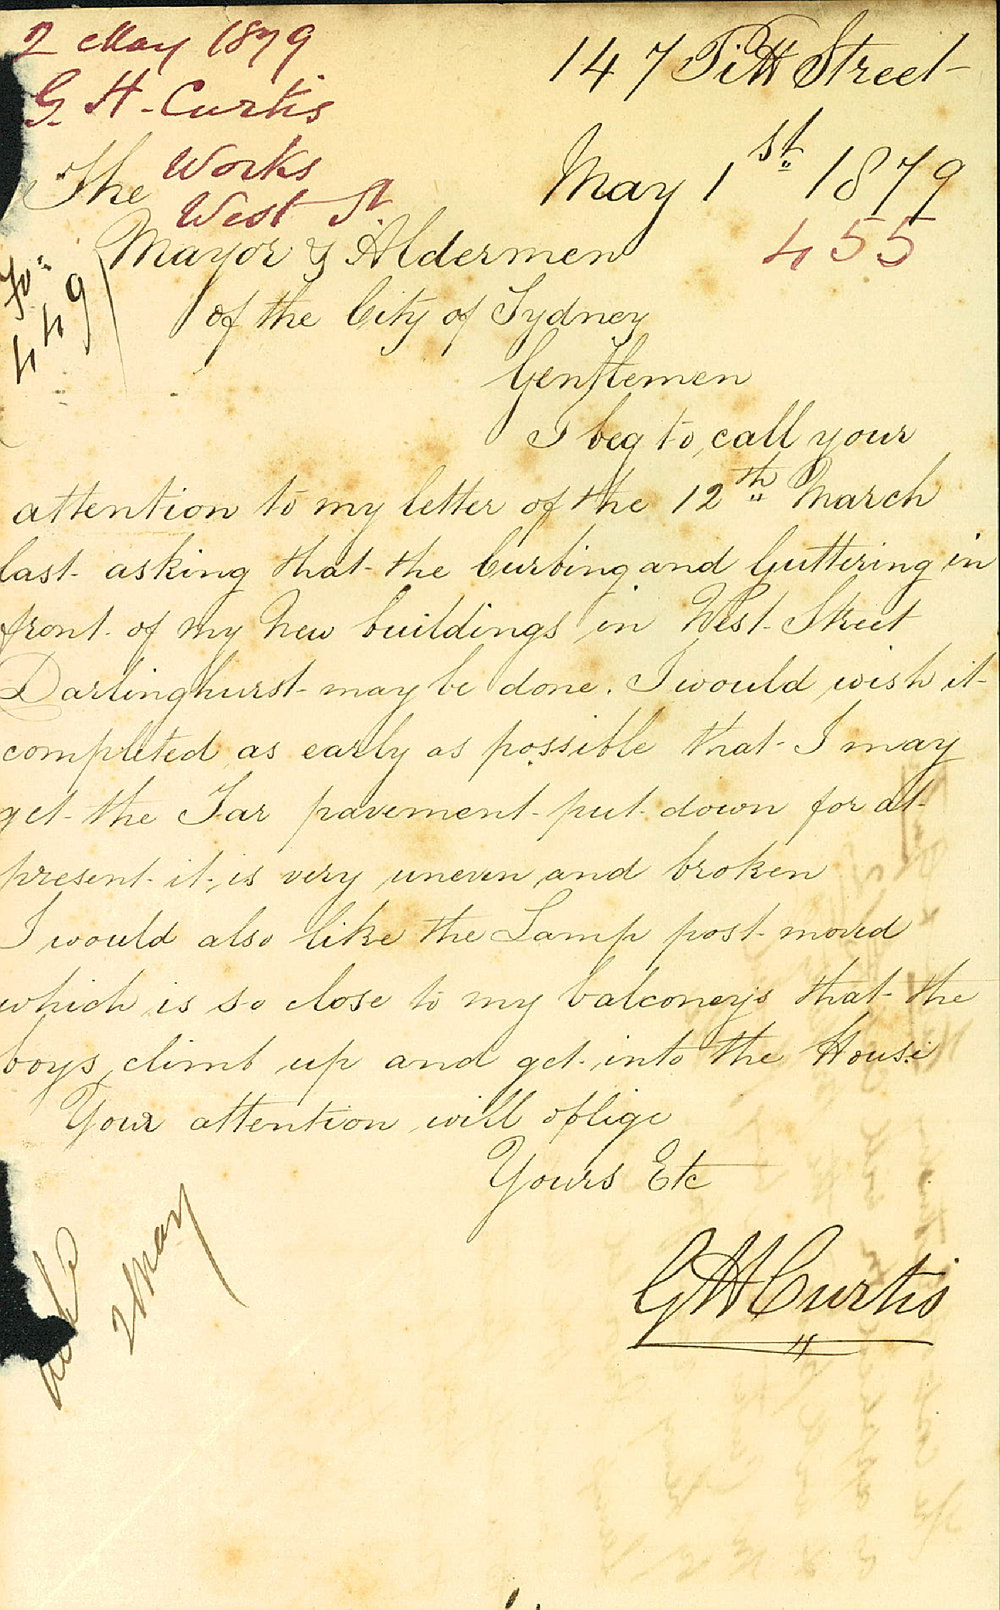 2 May 1879
G. H. Curtis
Works
West St
147 Pitt Street
May 1st 1879
455
The
Mayor & Aldermen
of the City of Sydney
449
Gentlemen
I beg to call your
attention to my letter of the 12th March
last asking that the Curbing and Guttering in
front of my New buildings in West Street
Darlinghurst may be done. I would wish it
completed as early as possible that I may
get the Tar pavement put down for at
present it is very uneven and broken
I would also like the Lamp post moved
which is so close to my balconey's that the
boys climb up and get into the House
Your attention will oblige
Yours Etc
G H Curtis
2 May